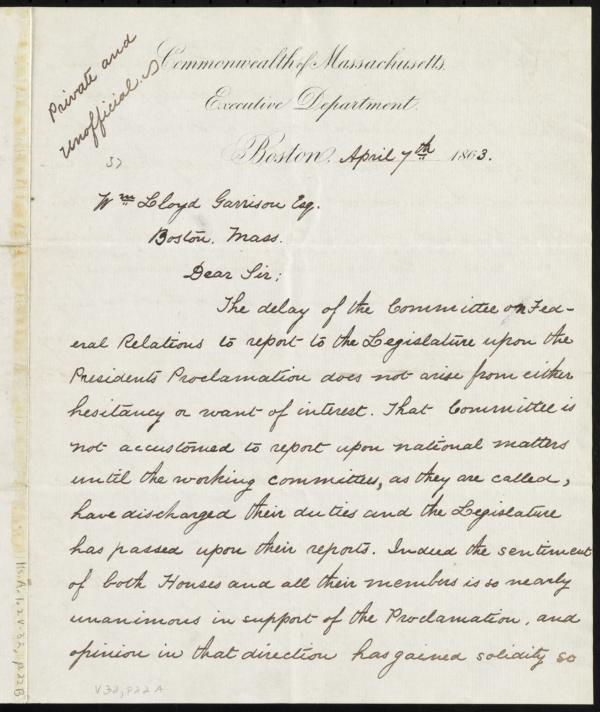 Private and
unofficial.
Commonwealth of Massachusetts.
Executive Department.
Boston, April 7th 1863.
Wm Lloyd Garrison Esq.
Boston. Mass.
Dear Sir;
The delay of the Committee on Fed-
eral Relations to report to the Legislature upon the
Presidents Proclamation does not arise from either
hesitancy or want of interest. That Committee is
not accustomed to report upon national matters
until the working committees, as they are called,
have discharged their duties and the Legislature
has passed upon their reports. Indeed the sentiment
of both Houses and all their members is so nearly
unanimous in support of the Proclamation, and
opinion in that direction has gained solidity so
V32, p22 A